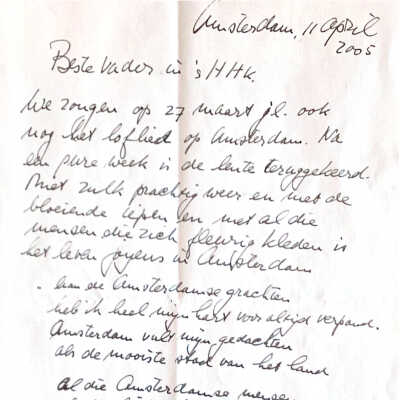 Amsterdam, 11 april
2005
Beste Vader in 's HHK.
We zongen op 27 maart jl. ook
nog het loflied op Amsterdam. Na
een pure week is de lente teruggekeerd.
Met zulk prachtig weer en met de
bloeiende iepen en met al die
mensen die zich fleurig kleden is
het leven joyeus in Amsterdam
aan de Amsterdamse grachten
heb ik heel mijn hart voor altijd verpand.
Amsterdam vult mijn gedachten
als de mooiste stad van het land
al die Amsterdamse mensen